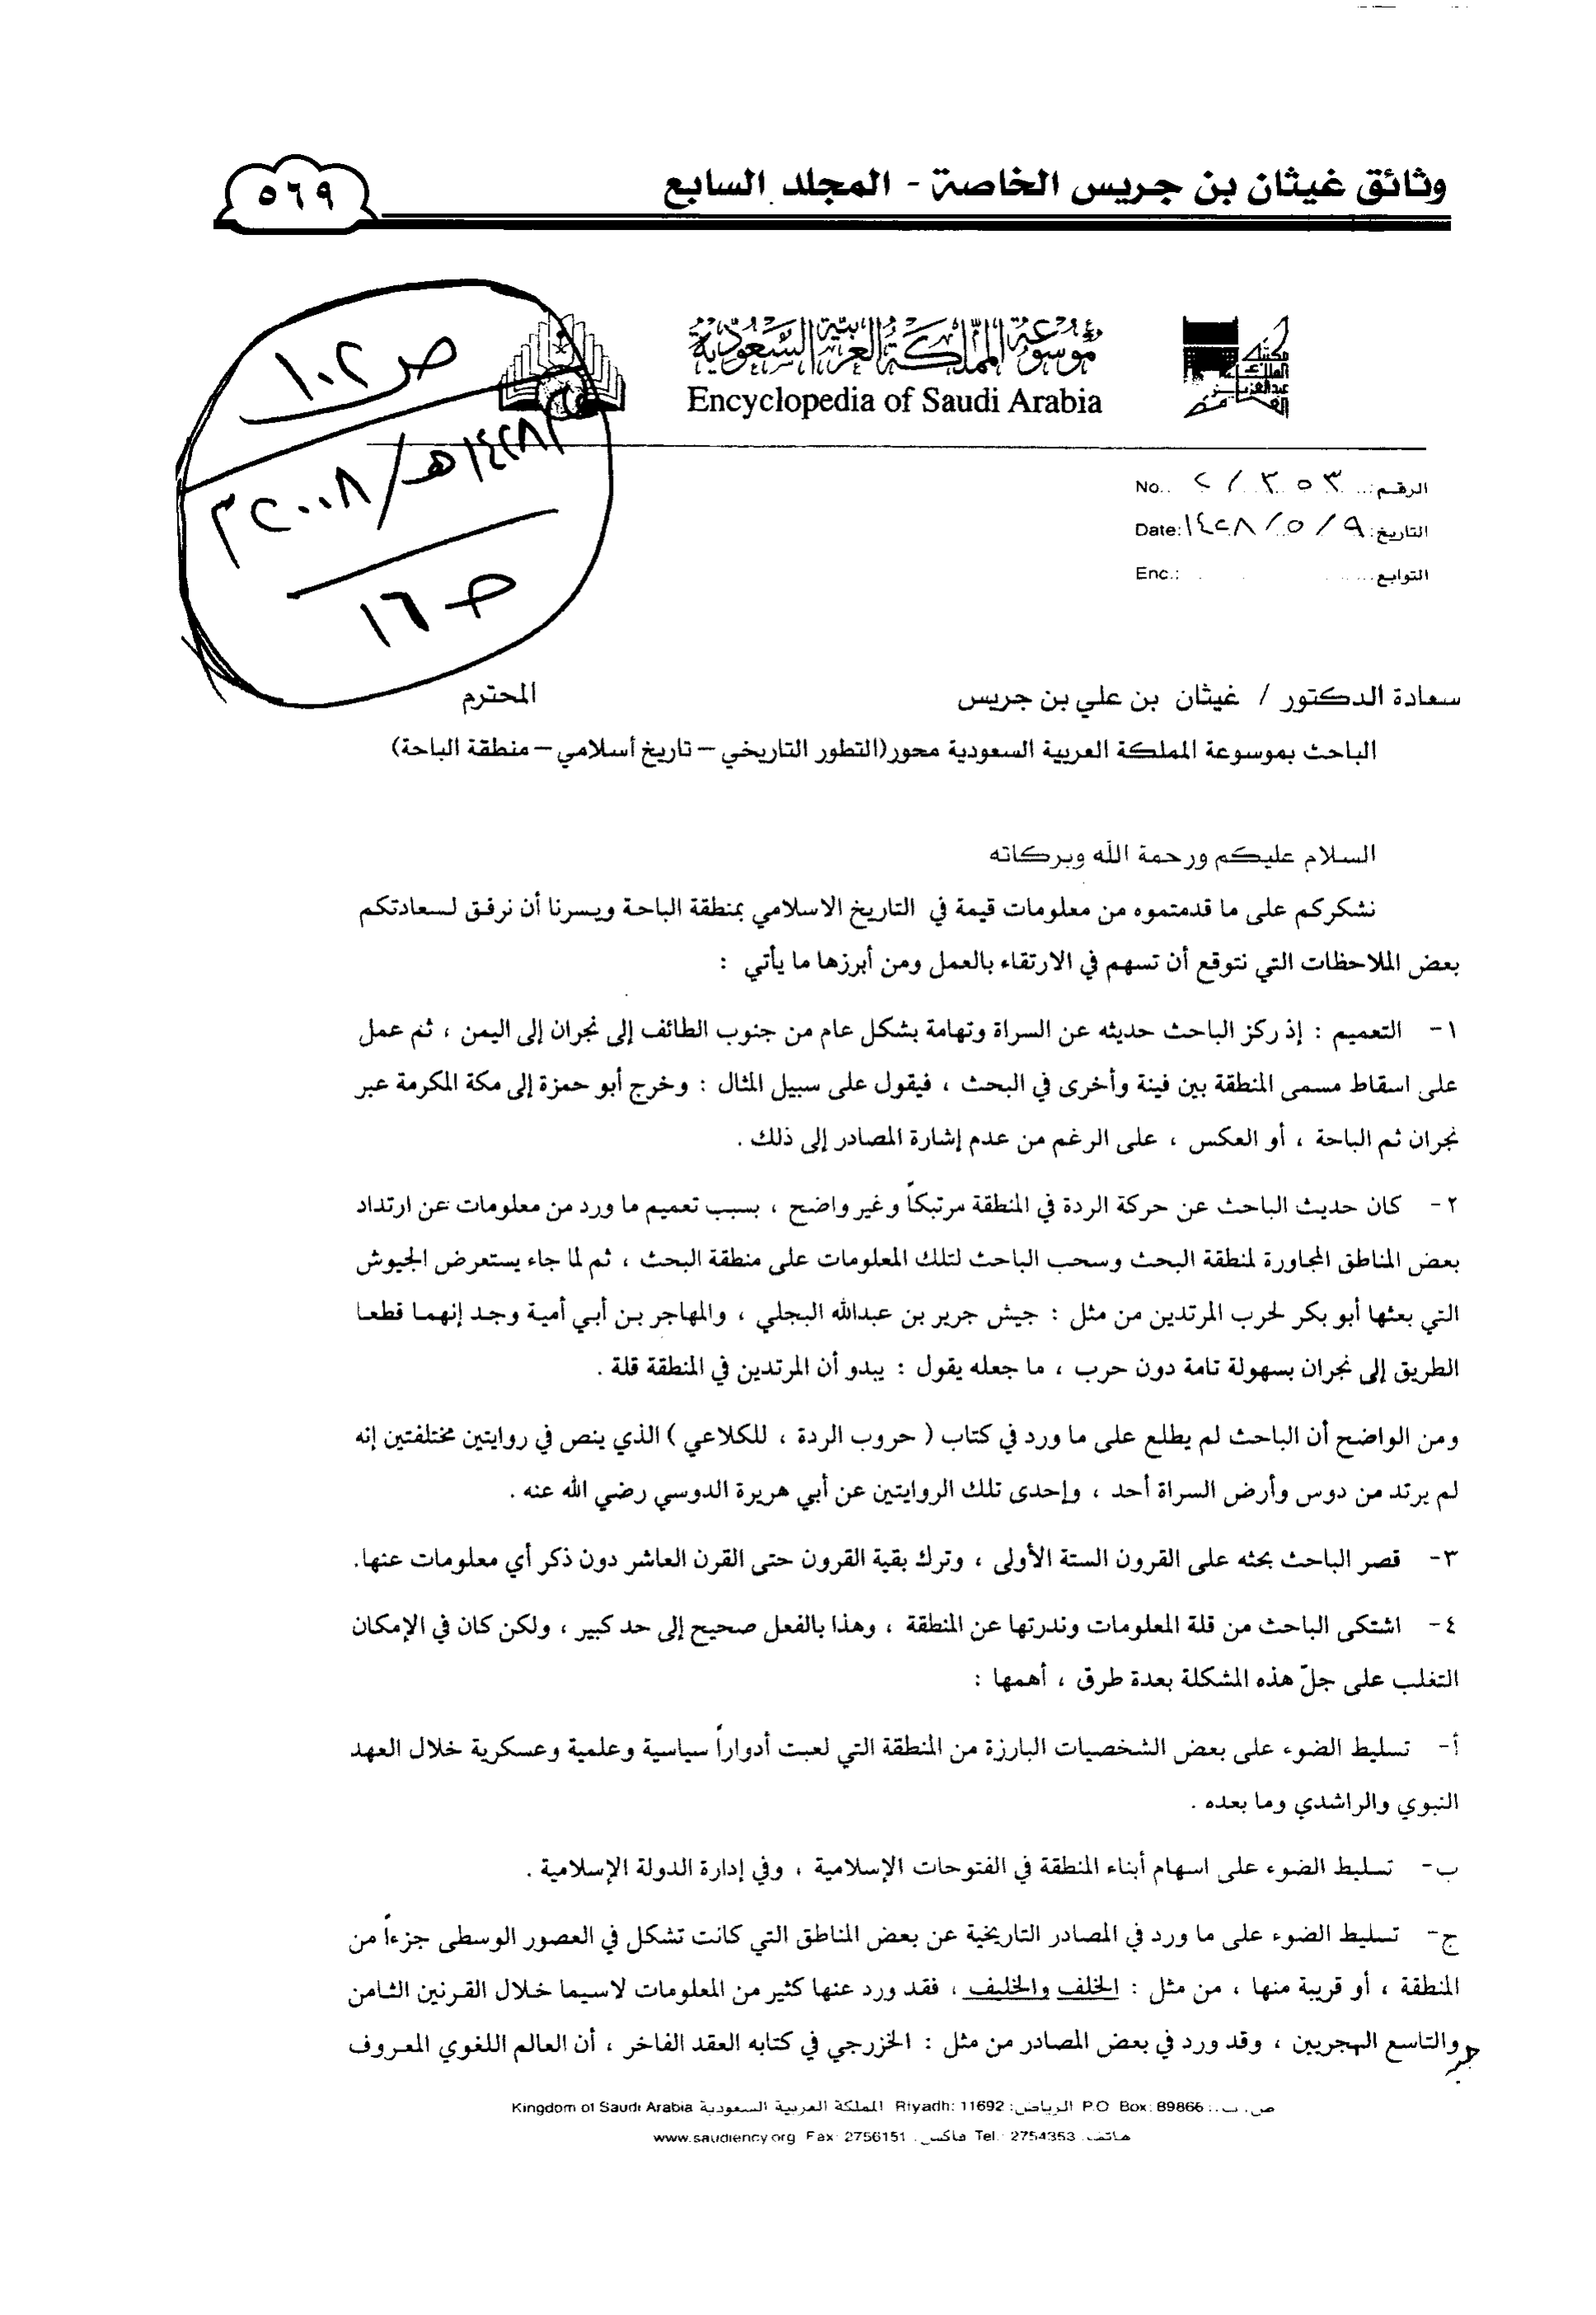 وثائق غيثان بن جريس الخاصة - المجلد السابع
٥٦٩
مكتبة الملك عبدالعزيز العامة
موسوعة المملكة العربية السعودية
Encyclopedia of Saudi Arabia
ص ١٠٢
١٤٢٨هـ/٢٠٠٨م
١٦
الرقم: ٢/٣٥٣ No..
التاريخ: ١٤٢٨/٥/٩ Date:
التوابع Enc.:
سعادة الدكتور / غيثان بن علي بن جريس المحترم
الباحث بموسوعة المملكة العربية السعودية محور(التطور التاريخي – تاريخ أسلامي – منطقة الباحة)
السلام عليكم ورحمة الله وبركاته
نشكركم على ما قدمتموه من معلومات قيمة في التاريخ الاسلامي بمنطقة الباحة ويسرنا أن نرفق لسعادتكم
بعض الملاحظات التي نتوقع أن تسهم في الارتقاء بالعمل ومن أبرزها ما يأتي :
١- التعميم : إذ ركز الباحث حديثه عن السراة وتهامة بشكل عام من جنوب الطائف إلى نجران إلى اليمن ، ثم عمل
على اسقاط مسمى المنطقة بين فينة وأخرى في البحث ، فيقول على سبيل المثال : وخرج أبو حمزة إلى مكة المكرمة عبر
نجران ثم الباحة ، أو العكس ، على الرغم من عدم إشارة المصادر إلى ذلك .
٢- كان حديث الباحث عن حركة الردة في المنطقة مرتبكاً وغير واضح ، بسبب تعميم ما ورد من معلومات عن ارتداد
بعض المناطق المجاورة لمنطقة البحث وسحب الباحث لتلك المعلومات على منطقة البحث ، ثم لما جاء يستعرض الجيوش
التي بعثها أبو بكر لحرب المرتدين من مثل : جيش جرير بن عبدالله البجلي ، والمهاجر بن أبي أمية وجد إنهما قطعا
الطريق إلى نجران بسهولة تامة دون حرب ، ما جعله يقول : يبدو أن المرتدين في المنطقة قلة .
ومن الواضح أن الباحث لم يطلع على ما ورد في كتاب ( حروب الردة ، للكلاعي ) الذي ينص في روايتين مختلفتين إنه
لم يرتد من دوس وأرض السراة أحد ، وإحدى تلك الروايتين عن أبي هريرة الدوسي رضي الله عنه .
٣- قصر الباحث بحثه على القرون الستة الأولى ، وترك بقية القرون حتى القرن العاشر دون ذكر أي معلومات عنها.
٤- اشتكى الباحث من قلة المعلومات وندرتها عن المنطقة ، وهذا بالفعل صحيح إلى حد كبير ، ولكن كان في الإمكان
التغلب على جلّ هذه المشكلة بعدة طرق ، أهمها :
أ- تسليط الضوء على بعض الشخصيات البارزة من المنطقة التي لعبت أدواراً سياسية وعلمية وعسكرية خلال العهد
النبوي والراشدي وما بعده .
ب- تسليط الضوء على اسهام أبناء المنطقة في الفتوحات الإسلامية ، وفي إدارة الدولة الإسلامية .
ج- تسليط الضوء على ما ورد في المصادر التاريخية عن بعض المناطق التي كانت تشكل في العصور الوسطى جزءاً من
المنطقة ، أو قريبة منها ، من مثل : الخلف والخليف ، فقد ورد عنها كثير من المعلومات لاسيما خلال القرنين الثامن
والتاسع الهجريين ، وقد ورد في بعض المصادر من مثل : الخزرجي في كتابه العقد الفاخر ، أن العالم اللغوي المعروف
ص. ب.: P.O Box: 89866 الرياض: Riyadh: 11692 المملكة العربية السعودية Kingdom of Saudi Arabia
هاتف. Tel.: 2754353 فاكس. Fax: 2756151 www.saudiency.org